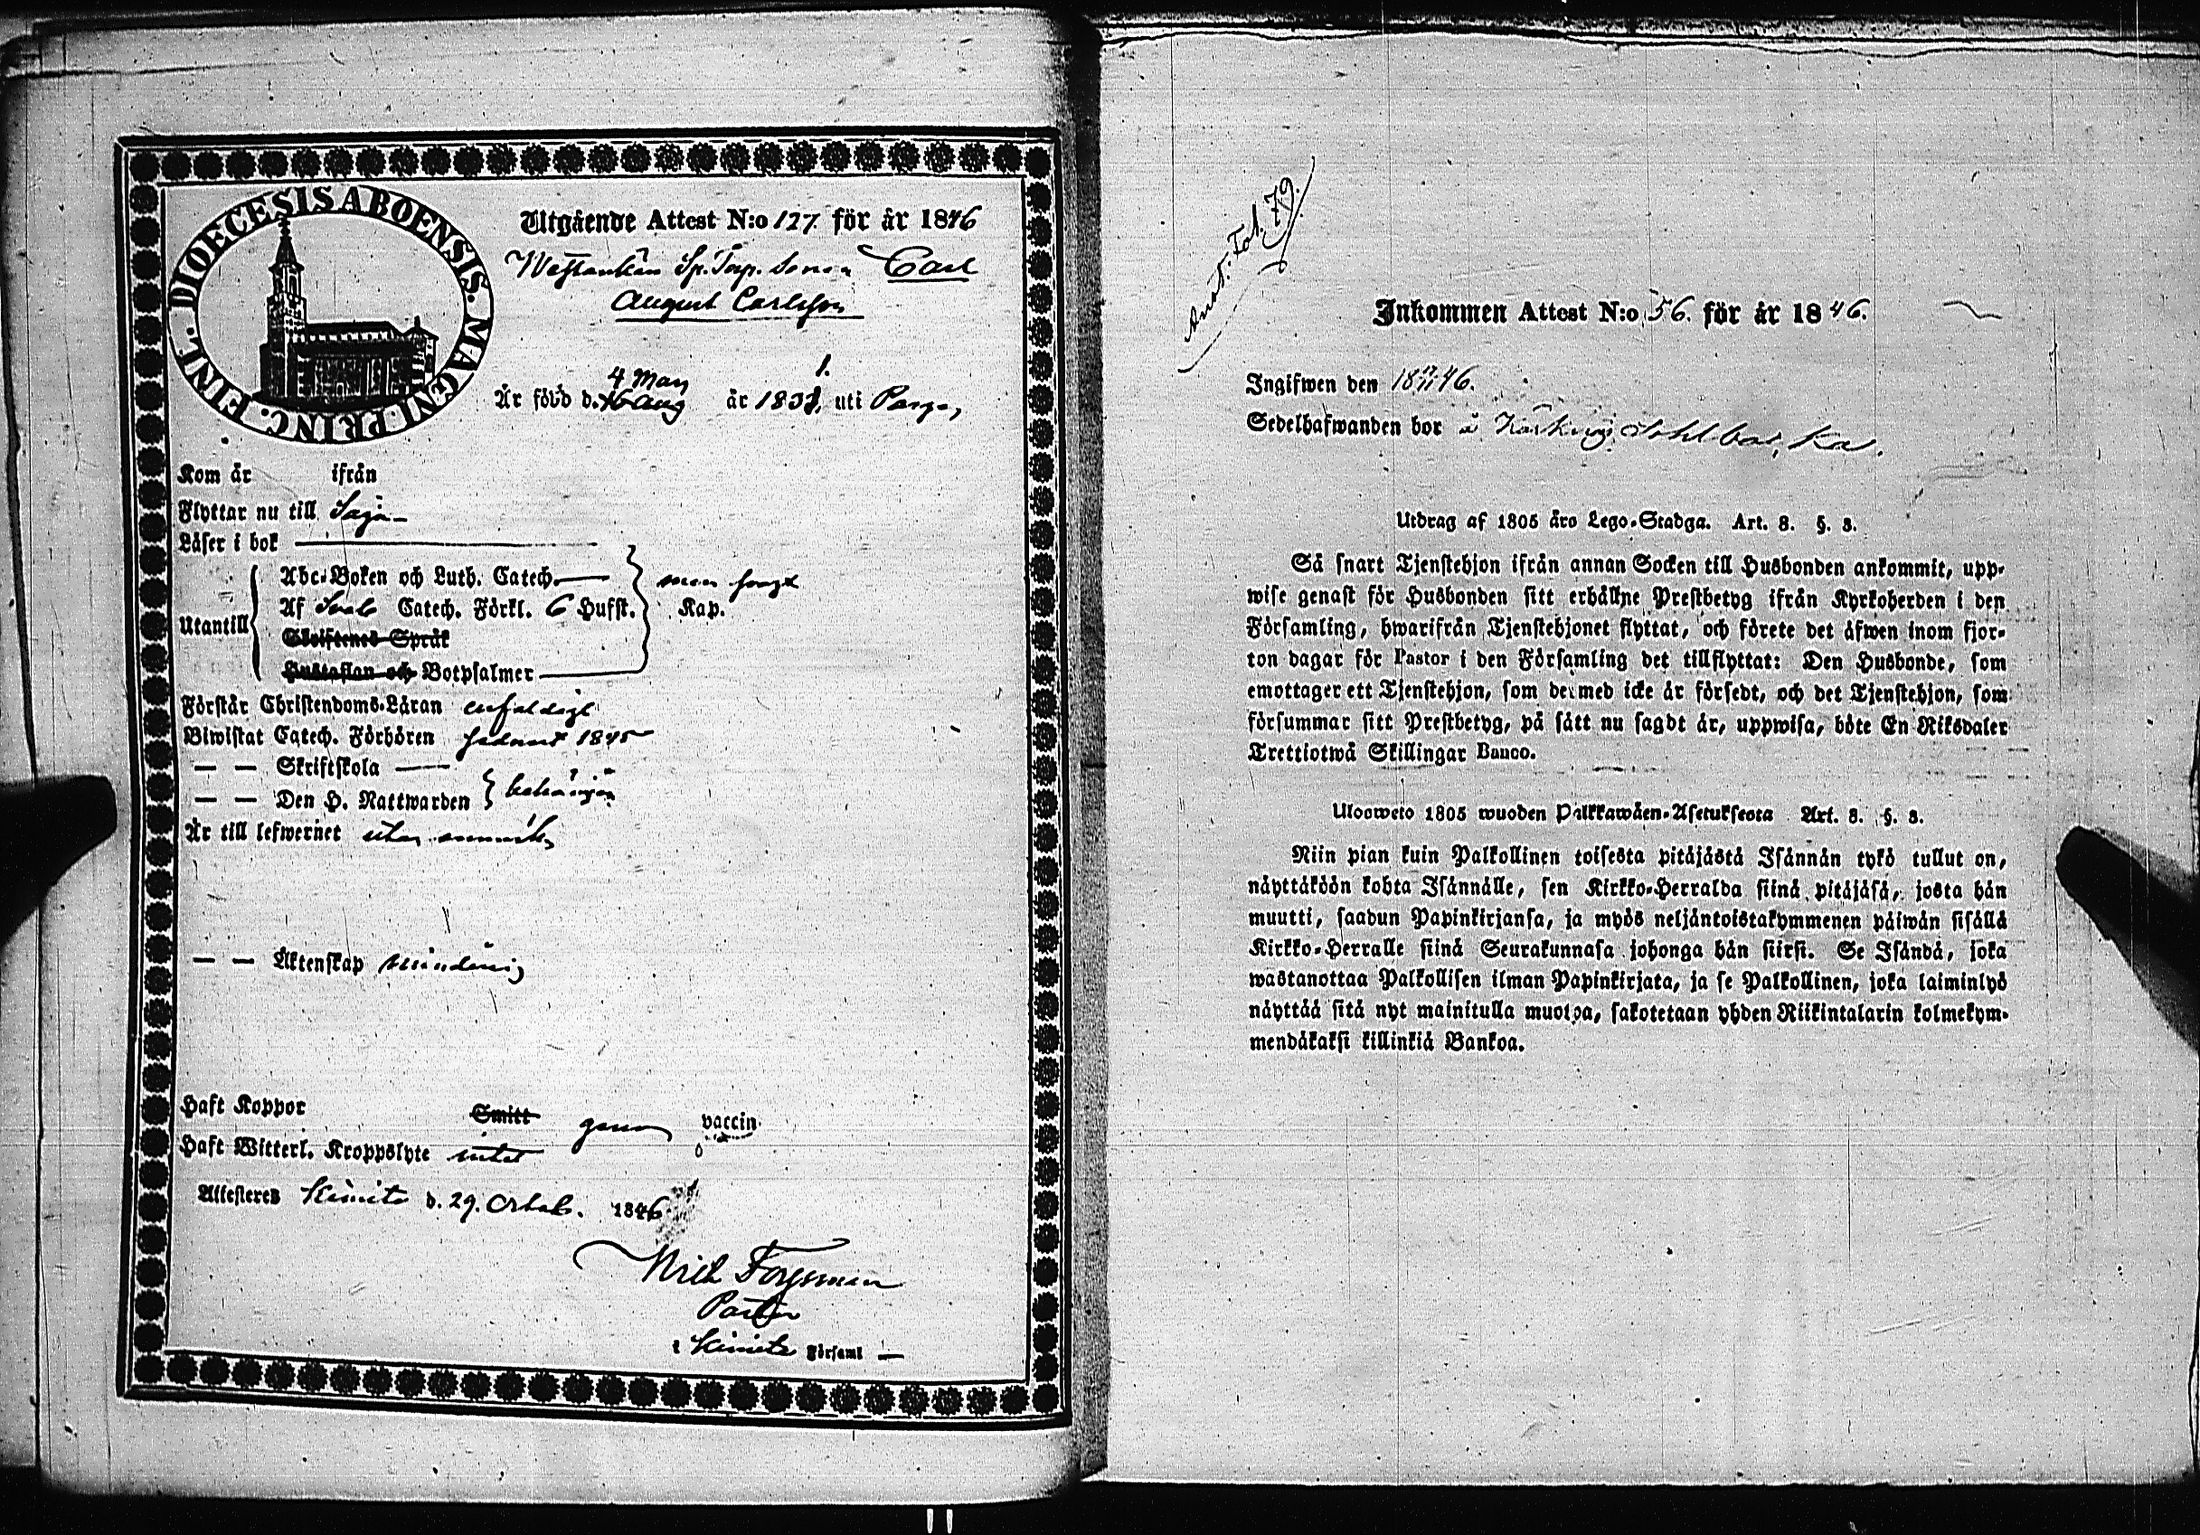 DIOECESIS ABOENSIS. MAGNI PRINC. FINL.
Utgående Attest N:o 127. för år 1846
Sp. Torp. Sonen Carl
August Carlsson
4 May 1.
Är född d. 16 Aug år 1831, uti Pargas,
Kom år ifrån
Flyttar nu till Sagu
Läser i bok
Utantill
Abc-Boken och Luth. Catech. men svagt
Af Sveb. Catech. Förkl. 6 Hufst. Kap.
Skriftenes Språk
Hustaflan och Botpsalmer
Förstår Christendoms-Läran enfaldigt
Biwistat Catech. Förhören sedan 1845
— — Skriftskola
— — Den H. Nattwarden
Är till lefwernet utan anmärkn
— — Äktenskap minderårig
Haft Koppor Smitt genom vaccin.
Haft Witterl. Kroppslyte intet
Attesteres Kimito d. 29. Octob. 1846
Mich Forssman
Pastor
i Kimito Församl
Anot. Fol. 79.
Inkommen Attest N:o 56. för år 1846.
Ingifwen den 18 46.
Sedelhafwanden bor å
Utdrag af 1805 års Lego-Stadga. Art. 8. §. 3.
Så snart Tjenstehjon ifrån annan Socken till Husbonden ankommit, upp-
wise genast för Husbonden sitt erhållne Prestbetyg ifrån Kyrkoherden i den
Församling, hwarifrån Tjenstehjonet flyttat, och förete det äfwen inom fjor-
ton dagar för Pastor i den Församling det tillflyttat: Den Husbonde, som
emottager ett Tjenstehjon, som dermed icke är försedt, och det Tjenstehjon, som
försummar sitt Prestbetyg, på sätt nu sagdt är, uppwisa, böte En Riksdaler
Trettiotwå Skillingar Banco.
Ulosweto 1805 wuoden Palkkawäen-Asetuksesta Art. 8. §. 3.
Niin pian kuin Palkollinen toisesta pitäjästä Isännän tykö tullut on,
näyttäköön kohta Isännälle, sen Kirkko-Herralda siinä pitäjäsä, josta hän
muutti, saadun Papinkirjansa, ja myös neljäntoistakymmenen päiwän sisällä
Kirkko-Herralle siinä Seurakunnasa johonga hän siirsi. Se Isändä, joka
wastanottaa Palkollisen ilman Papinkirjata, ja se Palkollinen, joka laiminlyö
näyttää sitä nyt mainitulla muotoa, sakotetaan yhden Riikintalarin kolmekym-
mendäkaksi killinkiä Bankoa.